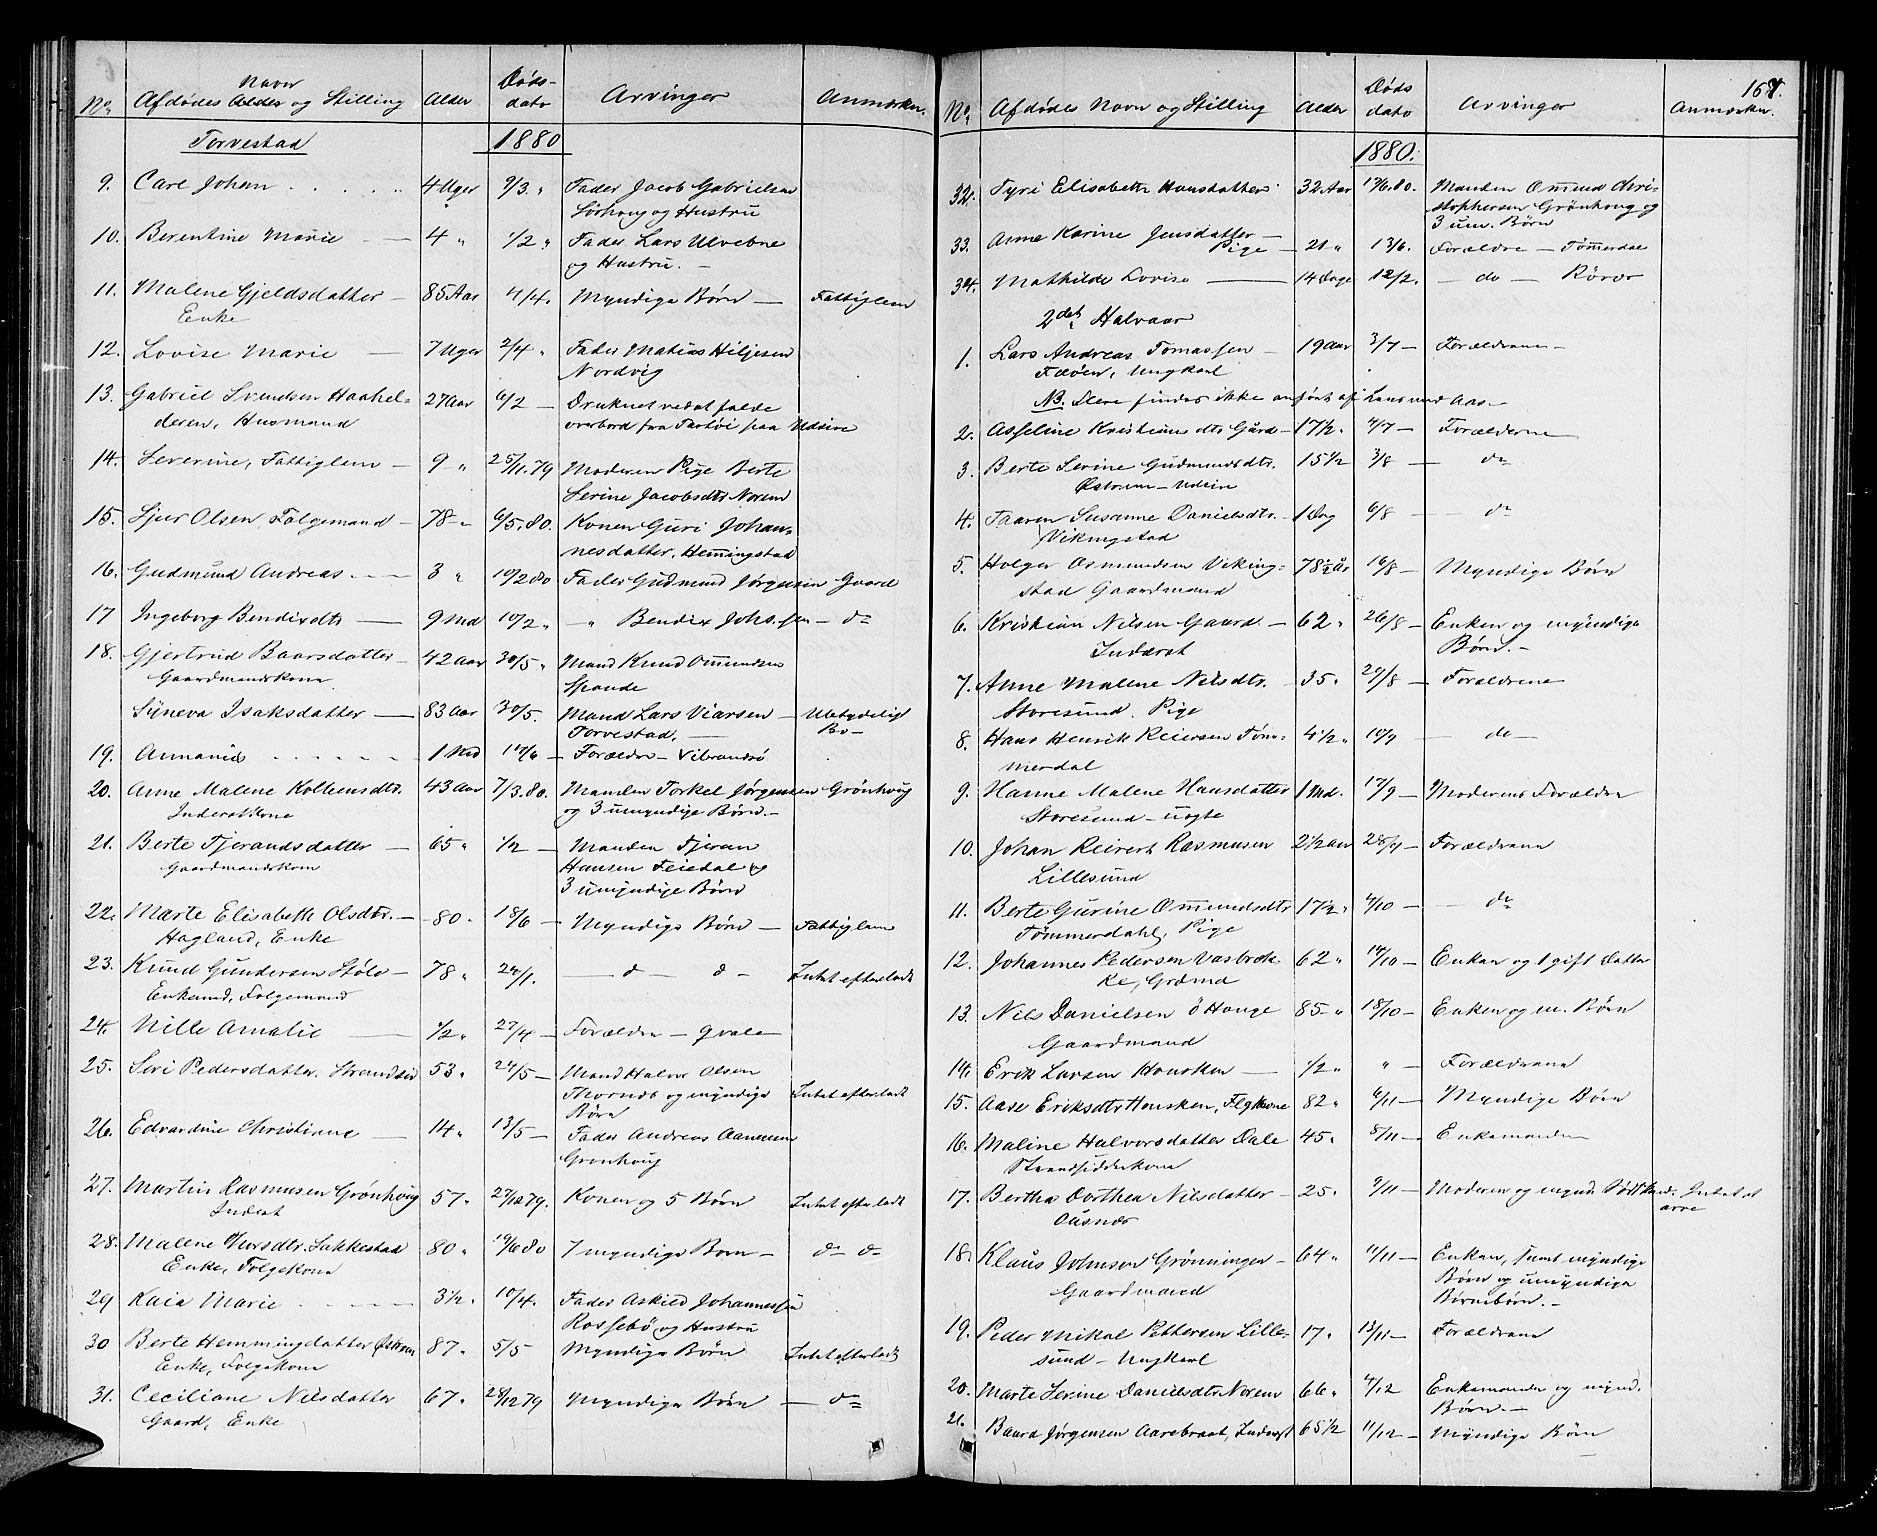 No. Afdødes Navn og Stilling Alder Døds-dato Arvinger Anmærkn.
Torvestad 1880
9. Carl Johan 4 Uger 9/3 " Fader Jacob Gabrielsen
Sørhoug og Hustru
10. Berentine Marie 4 " 1/2 " Fader Lars Ulvebne
og Hustru. –
11. Malene Gjeldsdatter – 85 Aar 4/4. Myndige Børn – Fattiglem
Enke
12. Lovise Marie 7 Uger 2/4 " Fader Matias Hiljesen
Nordvig
13. Gabriel Svendsen Haahel- 27 Aar 6/2 – Druknet ved at falde
deren, Husmand overbord fra Fartøi paa Udsire
14. Severine, Fattiglem – 9 " 25/11.79 Moderen Pige Berte
Serine Jacobsdtr Norem
15. Sjur Olsen, Folgemand – 78 " 6/5.80. Konen Guri Johan-
nesdatter, Hemingstad
16. Gudmund Andreas 3 " 10/2 80 Fader Gudmund Jørgensen Gaard
17 Ingeborg Bendixdtr 9 Md 10/2 " – " Bendix Johs.sen – do
18. Gjertrud Baarsdatter – 42 Aar 30/5 " Mand Knud Omundsen
Gaardmandskone Spande
Syneva Isaksdatter 83 Aar 30/5. Mand Lars Viarsen – Ubetydeligt
Torvestad. Bo –
19. Annanias 1 Md 10/6 – Forældre – Vibrandsø
20. Anne Malene Kolbensdtr. 43 Aar 7/3.80. Manden Torkel Jørgensen Grønhoug
Inderstkone og 3 umyndige Børn. –
21. Berte Tjerandsdatter 65 " 1/2 – Manden Tjeran
Gaardmandskone Hansen Feiedal og
3 umyndige Børn
22. Marte Elisabeth Olsdtr. – 80 " 18/6 – Myndige Børn – Fattiglem
Hagland, Enke
23. Knud Gundersen Støle – 78 " 24/1. – d – d – Intet efterladt
Enkemd, Folgemand
24. Nille Amalie 1/2 " 27/4 – Forældre – Qvale
25. Siri Pedersdatter. Strandsid 53 " 24/5 – Mand Halvor Olsen
Thornæs og myndige Intet efterladt
Børn
26. Edvardine Christiane 14 " 13/5 – Fader Andreas Aanensen
Grønhoug
27. Martin Rasmusen Grønhoug 57 " 27/12 79. Konen og 5 Børn Intet efterladt
Inderst
28. Malene Thorsdtr. Sakkestad 80 " 19/6 80 7 myndige Børn – do do
Enke, Folgekone
29 Kaia Marie 3 1/2 " 10/4. Fader Askild Johannessen
Rossebø og Hustru
30 Berte Hemmingdatter Østrem 87 " 5/5 Myndige Børn Intet efterladt
Enke, Folgekone
31. Ceciliane Nilsdatter 67 " 28/12 79 Myndige Børn – do
Gaard, Enke
167.
No. Afdødes Navn og Stilling Alder Døds dato Arvinger Anmærkn.
1880.
32. Tyri Elisabeth Hansdatter 32 Aar 17/6.80. Manden Omund Chri-
stophersen Grønhoug og
3 um. Børn
33. Anne Karine Jensdatter –
Pige 21 " 13/6. Forældre – Tømerdal
34. Mathilde Lovise 14 Dage 12/2. – do – Røvær
2det Halvaar
1. Lars Andreas Tomassen – 19 Aar 3/7 – Forældrene –
Fæøen, Ungkarl
NB. Flere findes ikke anført af Lensmand Aas –
2. Asseline Kristiansdtr Gård – 17 1/2 " 4/7 – Forælderne
3. Berte Serine Gudmundsdtr. 15 1/2 3/8 – do
Østrem – Udsire
4. Taaren Susanne Danielsdtr. – 1 Dag 6/8 – do
Vikingstad
5. Holger Osmundsen Viking- 78 1/2 år 16/8 – Myndige Børn
stad Gaardmand
6. Kristian Nilsen Gaard – 62 " 26/8 – Enken og myndige
Inderst Børn. –
7. Anne Malene Nilsdtr. – 35 " 24/8 – Forældrene
Storesund. Pige
8. Hans Henrik Reiersen Tøm- 4 1/2 " 10/9 – do –
merdal
9. Hanne Malene Hansdatter 1 Md. 17/9 – Moderens Forældre
Storesund – uægte
10. Johan Reinert Rasmusen 2 1/2 aar 28/9 – Forældrene
Lillesund
11. Berte Gurine Omundsdtr 17 1/2 " 4/10 – – do
Tømmerdahl, Pige
12. Johannes Pedersen Vasbræk- 62 " 14/10 – Enken og 1 gift Datter
ke, Grdmd
13. Nils Danielsen ö Hauge 85 – " 18/10 – Enken og m. Børn
Gaardmand
14. Erik Larsen Housken 1/2 " " – Forældrene
15. Aase Eriksdtr Housken, Flgkone 82 " 6/11 – Myndige Børn
16. Maline Halvorsdatter Dale 45 " 8/11 – Enkemanden
Strandsidderkone
17. Bertha Dorthea Nilsdatter – 25 " 9/11 – Moderen og mynd. Intet at
Ousnæs arve
18. Klaus Johnsen Grønningen – 64 " 11/11 – Enken, samt myndige
Gaardmand Børn og umyndige
Børnebørn. –
19. Peder Mikal Pettersen Lille- 17 " 13/11 – Forældrene
sund – Ungkarl
20. Marte Serine Danielsdtr Norem 66 " 4/12 Enkemanden og mynd.
Børn. –
21. Baard Jørgensen Aarebraat, Inderst 65 1/2 11/12 – Myndige Børn